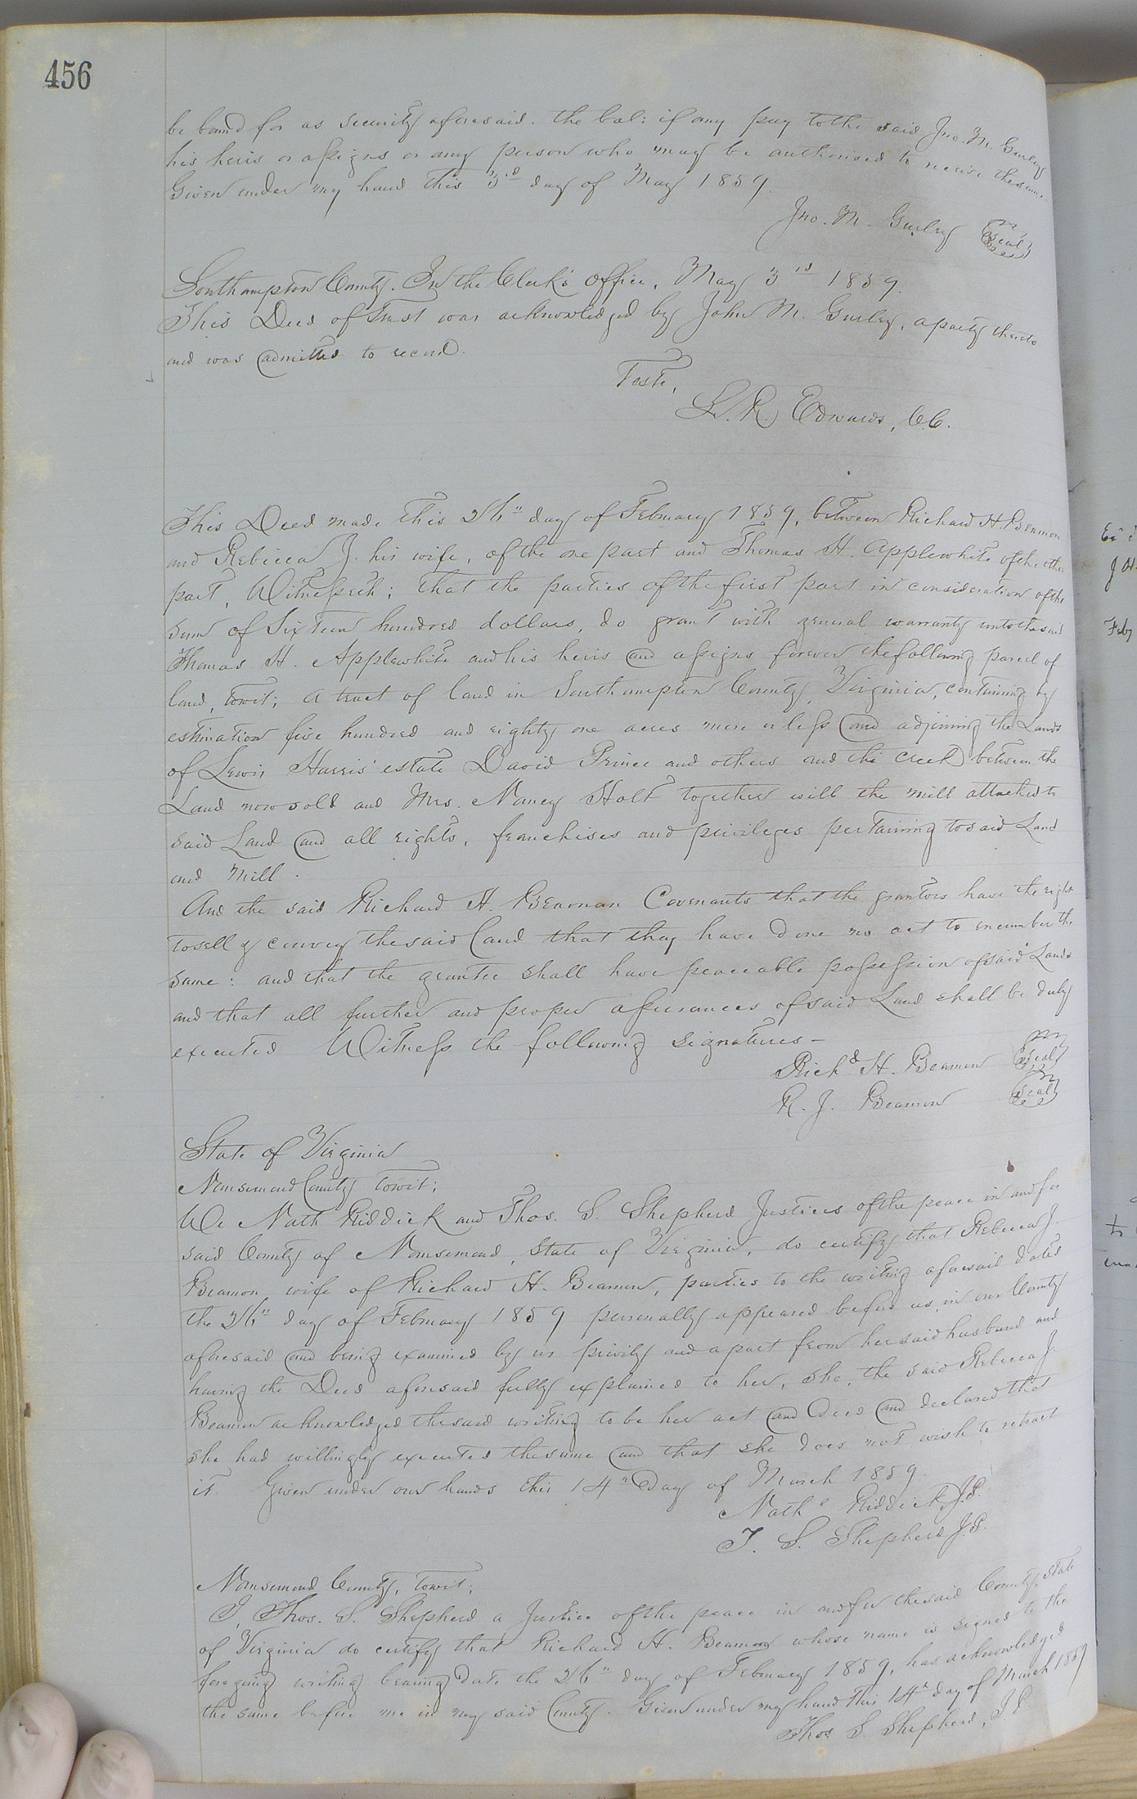 456
be bound for as security aforesaid. the bal: if any pay to the said Jno. M. Gurley
his heirs or assigns or any person who may be authorised to receive the same.
Given under my hand this 3rd day of May 1859.
Jno. M. Gurley (Seal)
Southampton County. In the Clerk's office, May 3rd 1859.
This Deed of Trust was acknowledged by John M. Gurley, a party thereto
and was admitted to record.
Teste,
L. R. Edwards, C.C.
This Deed made this 26th day of February 1859, between Richard H. Beamon
and Rebecca J. his wife, of the one part and Thomas H. Applewhite of the other
part, Witnesseth; that the parties of the first part in consideration of the
sum of Sixteen hundred dollars, do grant with general warranty unto the said
Thomas H. Applewhite and his heirs and assigns forever the following parcel of
land, towit; a tract of land in Southampton County, Virginia, containing by
estimation five hundred and eighty one acres more or less and adjoining the Lands
of Lewis Harris' estate David Prince and others and the Creek between the
Land now sold and Mrs. Nancy Holt together with the mill attached to
said Land and all rights, franchises and privileges pertaining to said Land
and Mill.
And the said Richard H. Beaman Covenants that the grantors have the right
to sell & convey the said land that they have done no act to encumber the
same: and that the grantee shall have peaceable possession of said Lands
and that all further and proper assurances of said Land shall be duly
executed Witness the following signatures –
Richd H. Beamon (Seal)
R. J. Beamon (Seal)
State of Virginia
Nansemond County towit;
We Nath Riddick and Thos. S. Shepherd Justices of the peace in and for
said County of Nansemond, State of Virginia, do certify that Rebecca J.
Beamon, wife of Richard H. Beamon, parties to the writing aforesaid dated
the 26th day of February 1859 personally appeared before us, in our County
aforesaid and being examined by us privily and apart from her said husband and
having the Deed aforesaid fully explained to her, she, the said Rebecca J.
Beamon acknowledged the said writing to be her act and Deed and declared that
she had willingly executed the same and that she does not wish to retract
it. Given under our hands this 14th Day of March 1859.
Nathl Riddick, J.P.
T. S. Shepherd J.P.
Nansemond County, towit;
I, Thos. S. Shepherd a Justice of the peace in and for the said County, State
of Virginia do certify that Richard H. Beamon whose name is signed to the
foregoing writing bearing Date the 26th day of February 1859, has acknowledged
the same before me in my said County. Given under my hand this 14th day of March 1859
Thos S Shepherd, J.P.